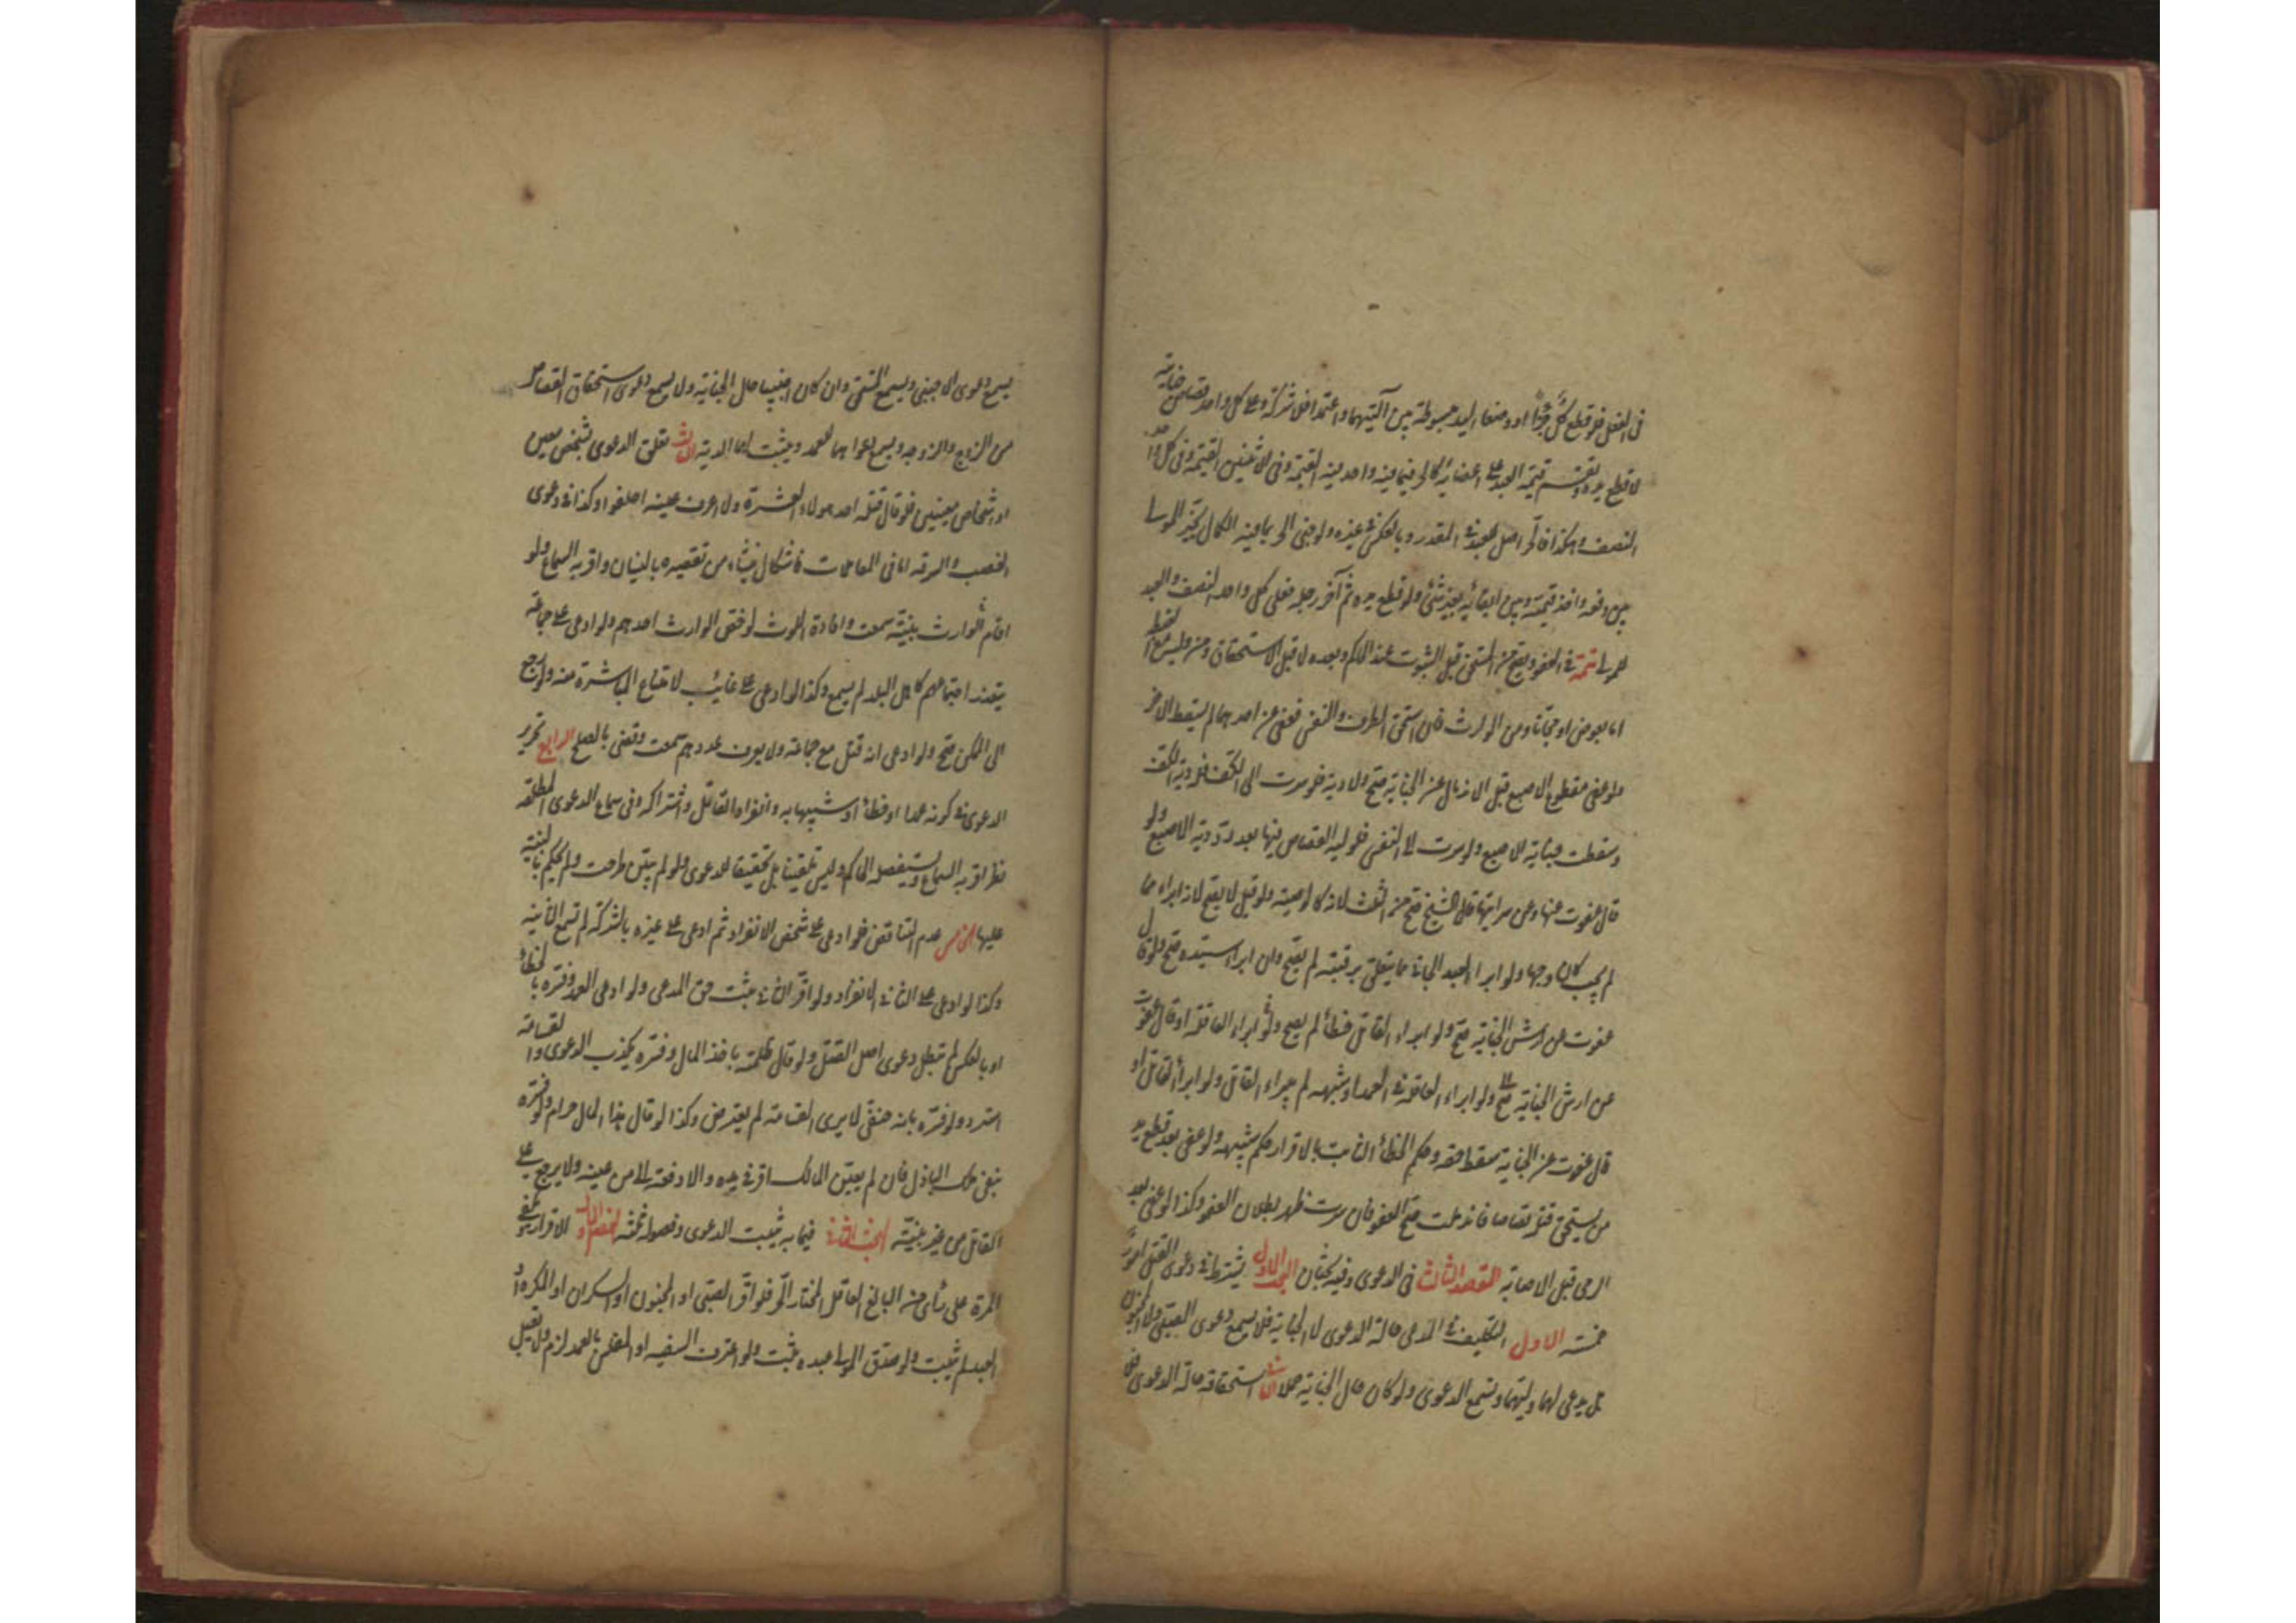 فى الفعل فلو قطع كل جزءاً او وضعا اليد مبسوطة بين آلتيهما واعتمدا فلا شركة وعلى كل واحد قصاص جنايته
لا قطع يده وتقسم قيمة العبد على اعضائه كالحر فيما فيه واحد فيه القيمة وفى الاثنين القيمة وفى كل واحد
النصف وهكذا فالحر اصل للعبد فى المقدر وبالعكس فى غيره ولو جنى الحر بما فيه الكمال تخير المولى
بين دفعه واخذ قيمته وبين ابقائه بغير شئ ولو قطع يده ثم آخر رجله فعلى كل واحد النصف والعبد
للمولى تتمة فى العفو ويصح من المستحق قبل الثبوت عند الحاكم وبعده لا قبل الاستحقاق ومن وليه مع الغبطة
اما بعوض او مجانا ومن الوارث فان استحق الطرف والنفس فعفى عن احدهما لم يسقط الاخر
ولو عفى مقطوع الاصبع قبل الاندمال عن الجناية صح ولا دية فلو سرت الى الكف فله دية الكف
وسقطت جناية الاصبع ولو سرت الى النفس فلوليه القصاص فيها بعد رد دية الاصبع ولو
قال عفوت عنها وعن سرايتها قال الشيخ صح من الثلث لانه كالوصية ولو قيل لا يصح لانه ابراء مما
لم يجب كان وجها ولو ابرا العبد الجانى مما يتعلق برقبته لم يصح وان ابرا سيده صح ولو قال
عفوت عن ارش الجناية صح ولو ابراء القاتل خطأ لم يصح ولو ابراء العاقلة او قال عفوت
عن ارش الجناية صح ولو ابراء العاقلة فى العمد او شبهه لم يبراء القاتل ولو ابرأ القاتل او
قال عفوت عن الجناية سقط حقه وحكم الخطأ الثابت بالاقرار حكم شبيهه ولو عفى بعد قطع يد
من يستحق قتله قصاصا فاندملت صح العفو فان سرت ظهر بطلان العفو وكذا لو عفى بعد
الرمى قبل الاصابة المقصد الثالث فى الدعوى وفيه بحثان البحث الاول يشترط فى دعوى القتل امور
خمسة الاول التكليف فى المدعى حالة الدعوى لا الجناية فلا يسمع دعوى الصبى ولا المجنون
بل يدعى لهما وليهما وتسمع الدعوى ولو كان حال الجناية حملا الثانى استحقاقه حالة الدعوى فلا
يسمع دعوى الاجنبى ويسمع المستحق وان كان اجنبيا حال الجناية ولا يسمع دعوى استحقاق القصاص
من الزوج والزوجة ويسمع دعواهما العمد ويثبت لهما الدية الثالث تعلق الدعوى بشخص معين
او اشخاص معينين فلو قال قتله احد هولاء العشرة ولا اعرف عينه احلفوا وكذا فى دعوى
الغصب والسرقة اما فى المعاملات فاشكال ينشاء من تقصيره بالنسيان واقربه السماع ولو
اقام الوارث بينة سمعت وافادة اللوث لو خص الوارث احدهم ولو ادعى على جماعة
يتعذر اجتماعهم كاهل البلد لم يسمع وكذا لو ادعى على غائب لامتناع المباشرة منه ولو رجع
الى الممكن صح ولو ادعى انه قتل مع جماعة ولا يعرف عددهم سمعت وقضى بالصلح الرابع تحرير
الدعوى فى كونه عمدا او خطأ او شبيها به وانفراد القاتل واشتراكه وفى سماع الدعوى المطلقة
نظر اقربه السماع ويستفصله الحاكم وليس تلقينا بل تحقيقا للدعوى ولو لم يبين طرحت ولم يحكم بالبينة
عليها الخامس عدم التناقض فلو ادعى على شخص الانفراد ثم ادعى على غيره بالشركة لم تسمع الثانية
وكذا لو ادعى على الثانى الانفراد ولو اقر الثانى يثبت حق المدعى ولو ادعى العمد وفسره بالخطأ
او بالعكس لم تبطل دعوى اصل القتل ولو قال ظلمته باخذ المال وفسره بكذب الدعوى والقسامة
استرد ولو فسره بانه حنفى لا يرى القسامة لم يعترض وكذا لو قال هذا المال حرام ولو فسره
بنفى ملك الباذل فان لم يعين المالك اقر فى يده والا دفعه الى من عينه ولا يرجع على
القاتل من غير بينة البحث الثانى فيما به يثبت الدعوى وفصوله ثلثة الفصل الاول الاقرار ويكفى
المرة على رأى من البالغ العاقل المختار الحر فلو اقر الصبى او المجنون او السكران او المكره او
العبد لم يثبت ولو صدق المولى عبده يثبت ولو اعترف السفيه او المفلس بالعمد لزم ولا يقبل